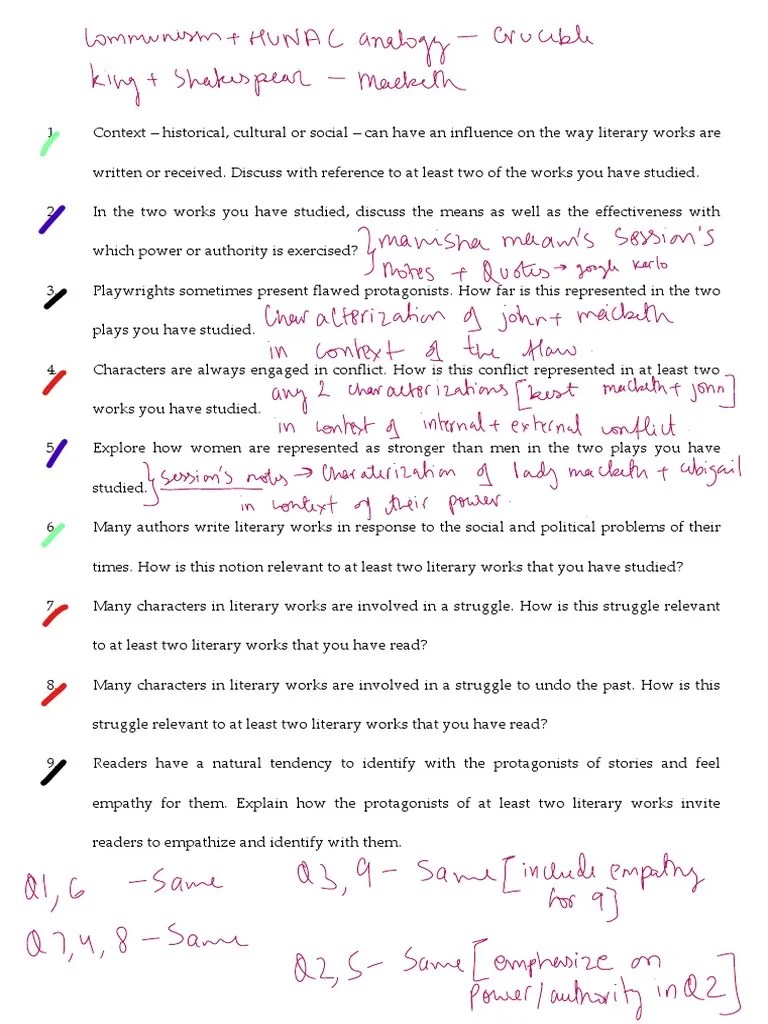 Communism + HUNAC analogy – Crucible
king + Shakespear – Macbeth
1 Context – historical, cultural or social – can have an influence on the way literary works are
written or received. Discuss with reference to at least two of the works you have studied.
2 In the two works you have studied, discuss the means as well as the effectiveness with
which power or authority is exercised? } manisha maam's session's
notes + Quotes → google karlo
3 Playwrights sometimes present flawed protagonists. How far is this represented in the two
plays you have studied. Characterization of john + macbeth
in context of the flaw.
4 Characters are always engaged in conflict. How is this conflict represented in at least two
works you have studied. any 2 characterizations [best macbeth + john]
in context of internal + external conflict.
5 Explore how women are represented as stronger than men in the two plays you have
studied. } session's notes → Charaterization of lady macbeth + abigail
in context of their power.
6 Many authors write literary works in response to the social and political problems of their
times. How is this notion relevant to at least two literary works that you have studied?
7 Many characters in literary works are involved in a struggle. How is this struggle relevant
to at least two literary works that you have read?
8 Many characters in literary works are involved in a struggle to undo the past. How is this
struggle relevant to at least two literary works that you have read?
9 Readers have a natural tendency to identify with the protagonists of stories and feel
empathy for them. Explain how the protagonists of at least two literary works invite
readers to empathize and identify with them.
Q1, 6 – Same
Q3, 9 – Same [include empathy
for 9]
Q7, 4, 8 – Same
Q2, 5 – Same [emphasize on
power/authority in Q2]